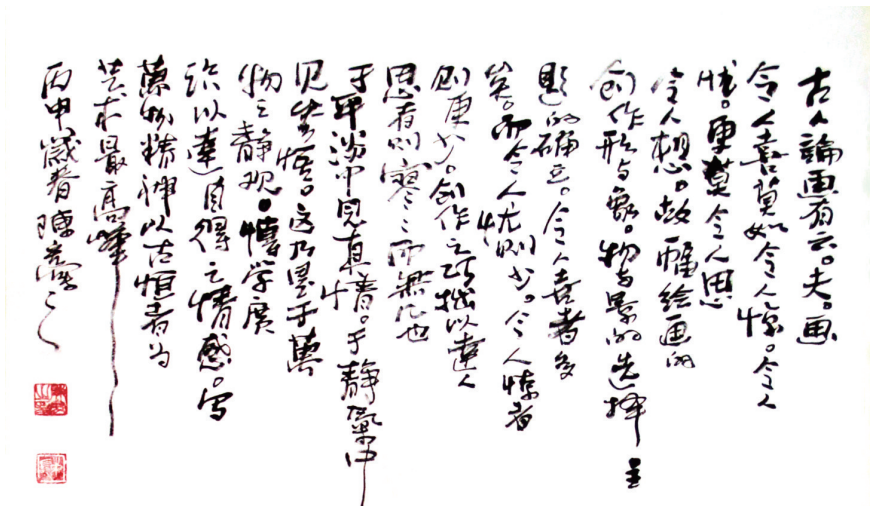 古人論画有云。夫。画
令人喜莫如令人惊。令人
惊。更莫令人思
令人想。故一幅绘画的
创作形与象。物与景的选择主
题的確立。令人喜者多
矣。而令人忧则少。令人惊者
则更少。创作之以達人
思者则寥寥而無几也
于平淡中见真情。于静氣中
见生悟。这乃是于萬
物之静观。博学廣
以達自得之情感。写
萬物精神以古恒者为
艺术最高峰
丙申歲春